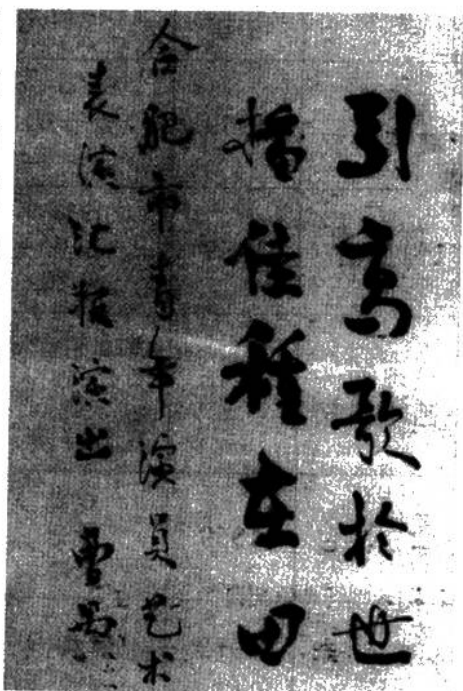 引高歌於世
播佳种在田
合肥市青年演员艺术
表演汇报演出 曹禺